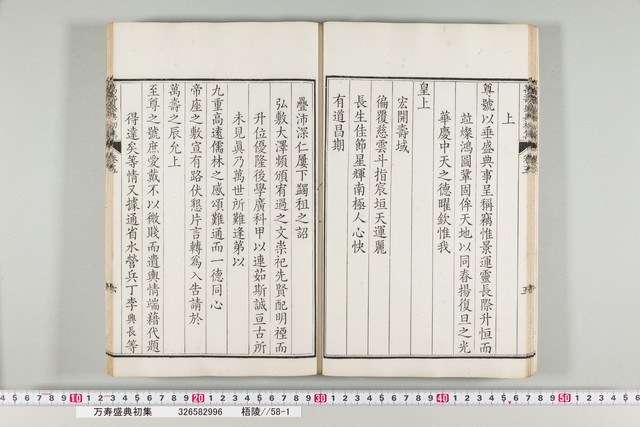 上
尊號以垂盛典事呈稱竊惟景運靈長際升恒而
竝燦鴻圖鞏固侔天地以同春揚復旦之光
華慶中天之德曜欽惟我
皇上
宏開壽域
徧覆慈雲斗指宸垣天運麗
長生佳節星輝南極人心快
有道昌期
疊沛深仁屢下蠲租之詔
弘敷大澤頻頒宥過之文崇祀先賢配明禋而
升位優隆後學廣科甲以連茹斯誠亘古所
未見真乃萬世所難逢第以
九重高遠儒林之感頌難通而一德同心
帝座之敷宣有路伏懇片言轉為入告請於
萬壽之辰允上
至尊之號庶愛戴不以微賤而遺輿情端藉代題
得達矣等情又據通省水營兵丁李典長等
10 20 30 40 50
万寿盛典初集 326582996 梧陵//58-1